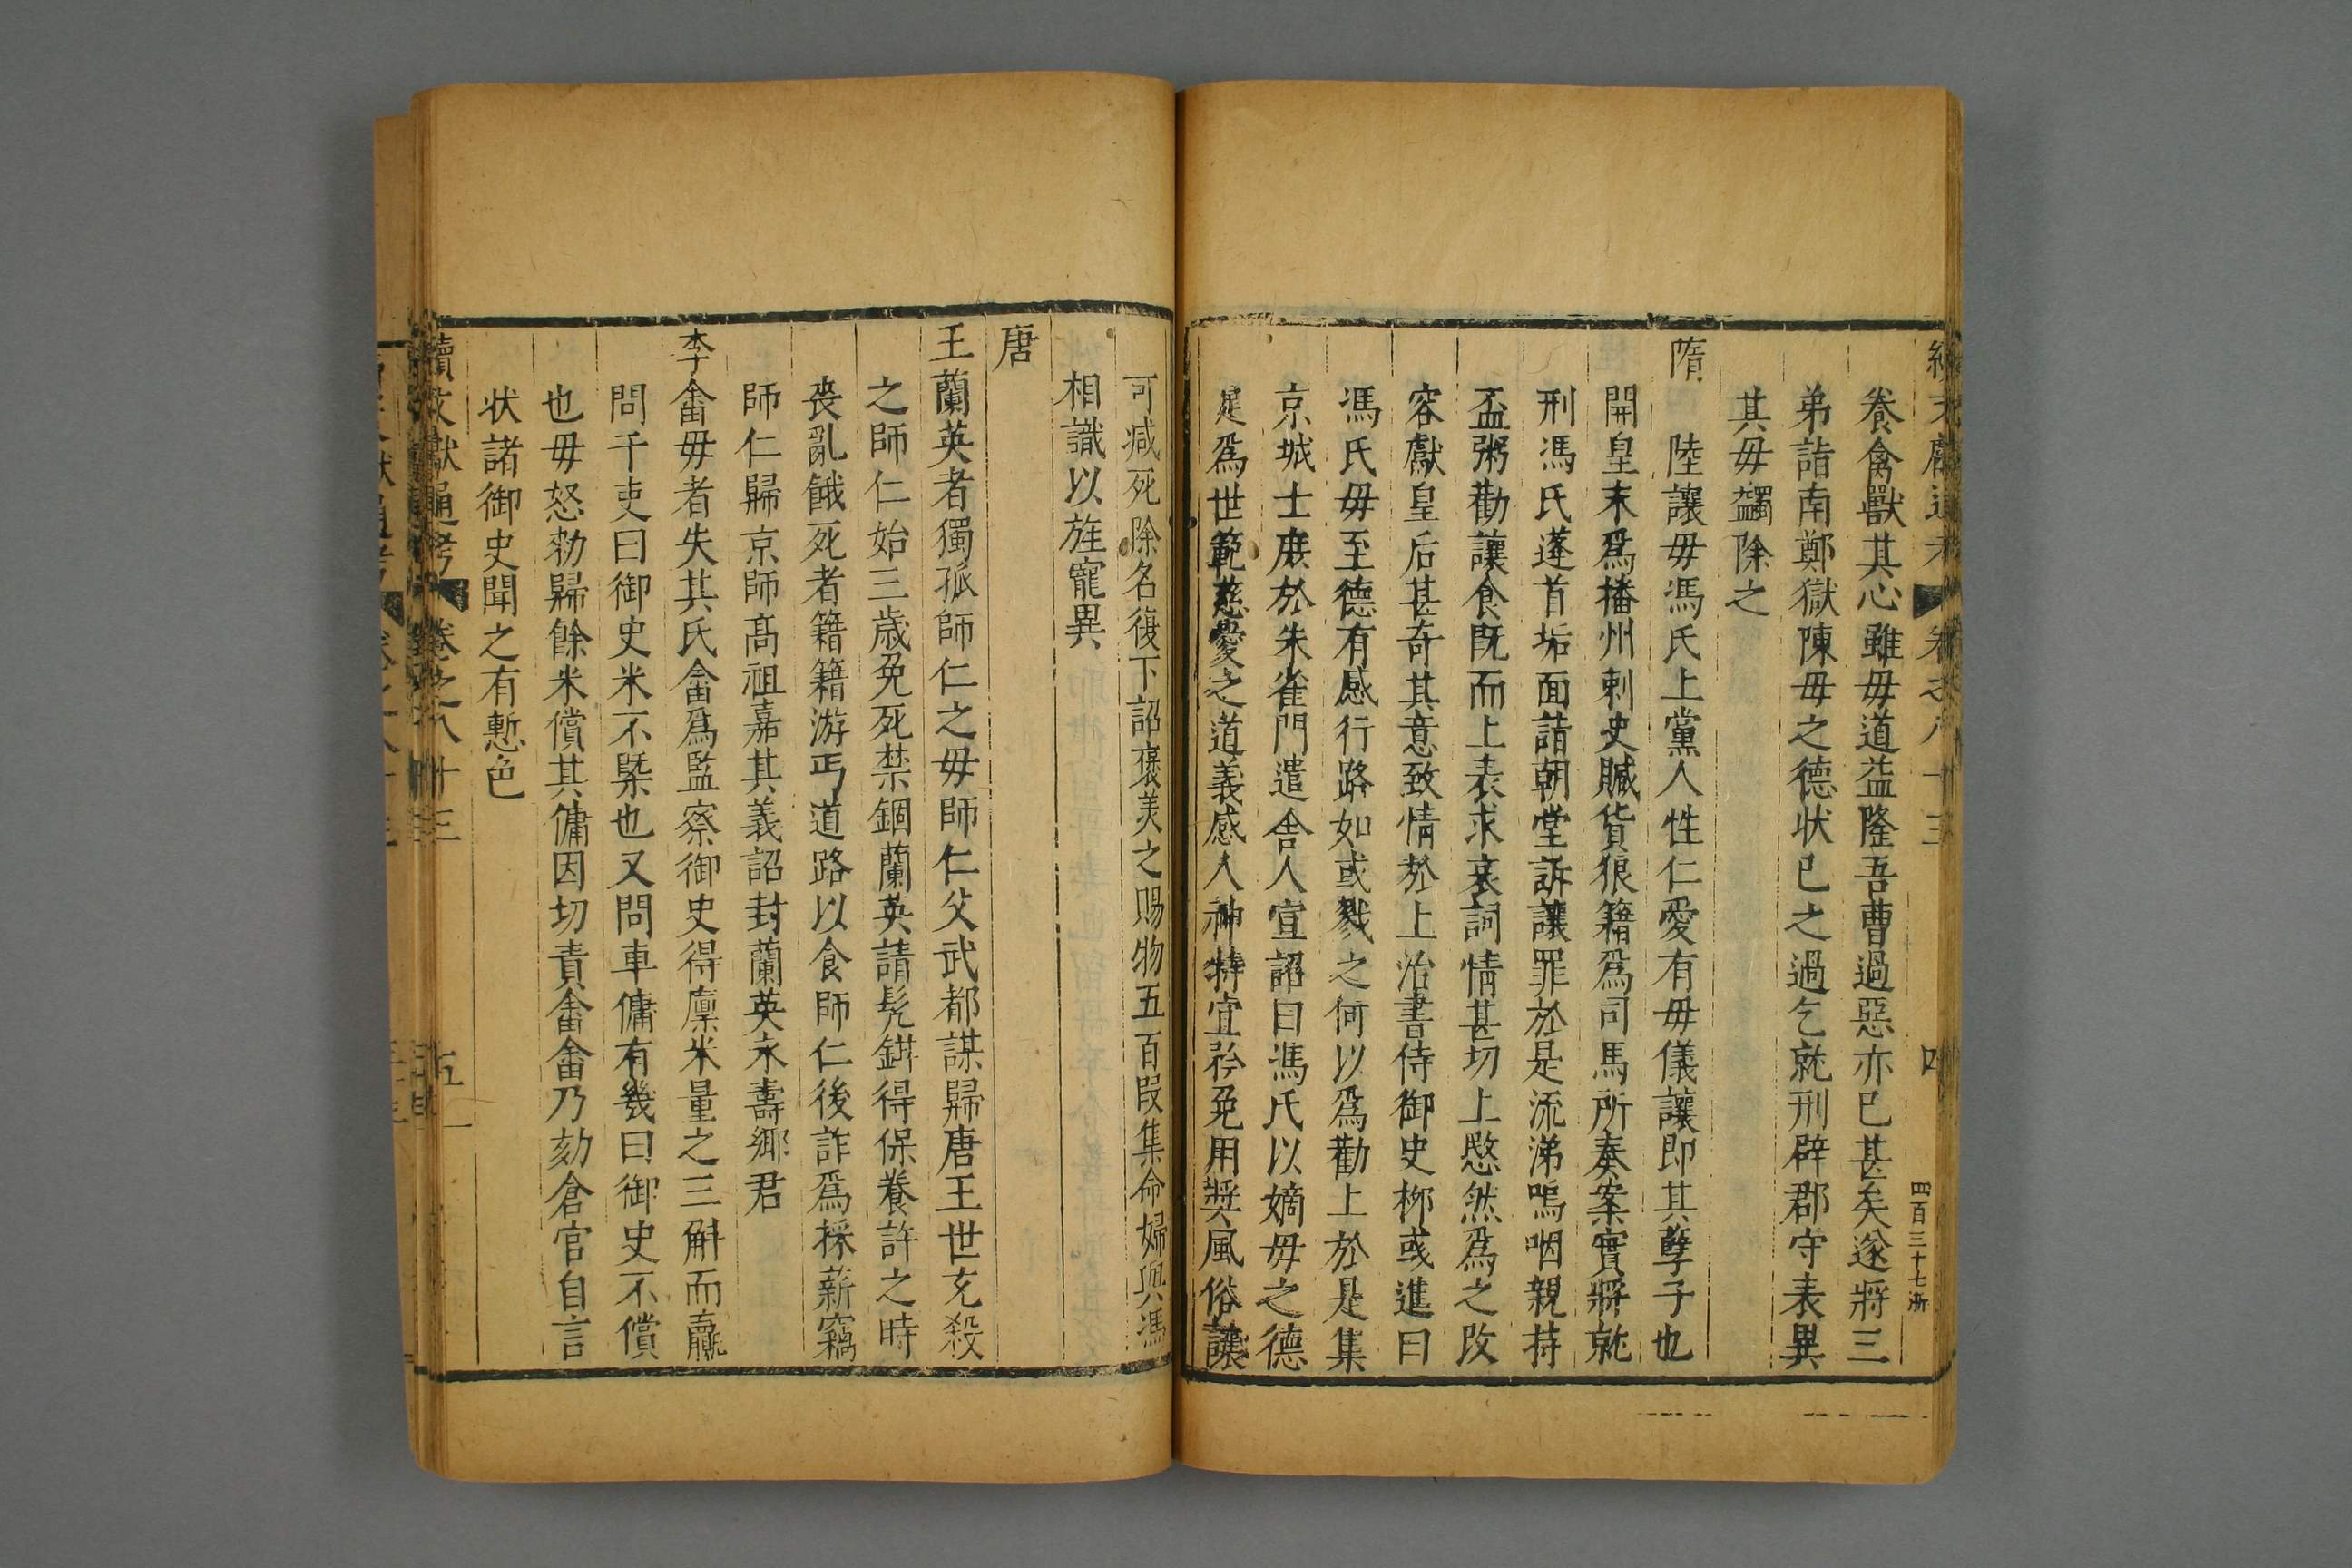 四
四百三十七浙
養禽獸其心雖毋道益隆吾曹過惡亦已甚矣遂將三
弟詣南鄭獄陳毋之德狀已之過乞就刑辟郡守表異
其毋蠲除之
隋
陸讓毋馮氏上黨人性仁愛有毋儀讓即其孽子也
開皇末爲播州刺史贓貨狼籍爲司馬所奏案實將就
刑馮氏蓬首垢面詣朝堂訴讓罪於是流涕嗚咽親持
盃粥勸讓食既而上表求哀詞情甚切上愍然爲之改
容獻皇后甚奇其意致情於上治書侍御史柳彧進曰
馮氏毋至德有感行路如或戮之何以爲勸上於是集
京城士庶於朱雀門遣舍人宣詔曰馮氏以嫡毋之德
足爲世範慈愛之道義感人神特宜矜免用奬風俗讓
可减死除名復下詔褒美之賜物五百段集命婦與馮
相識以旌寵異
唐
王蘭英者獨孤師仁之毋師仁父武都謀歸唐王世充殺
之師仁始三歲免死禁錮蘭英請髠鉗得保養許之時
喪亂餓死者籍籍游丐道路以食師仁後詐爲採薪竊
師仁歸京師高祖嘉其義詔封蘭英永壽鄉君
李畬毋者失其氏畬爲監察御史得廪米量之三斛而贏
問于吏曰御史米不槩也又問車傭有幾曰御史不償
也毋怒勑歸餘米償其傭因切責畬畬乃劾倉官自言
狀諸御史聞之有慙色
續文獻通考 卷之八十三 五